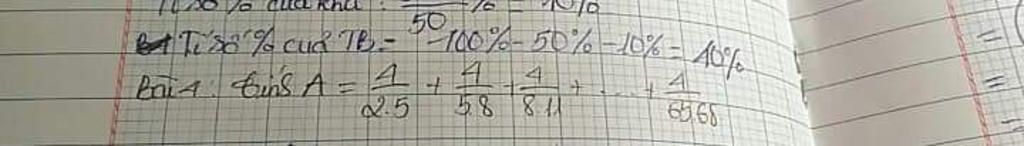 Tỉ số % của khá : 50 % = 10%
Tỉ số % của TB = 100% - 50% - 10% = 40%
Bài 4: tính A = 4/2.5 + 4/5.8 + 4/8.11 + ... + 4/65.68